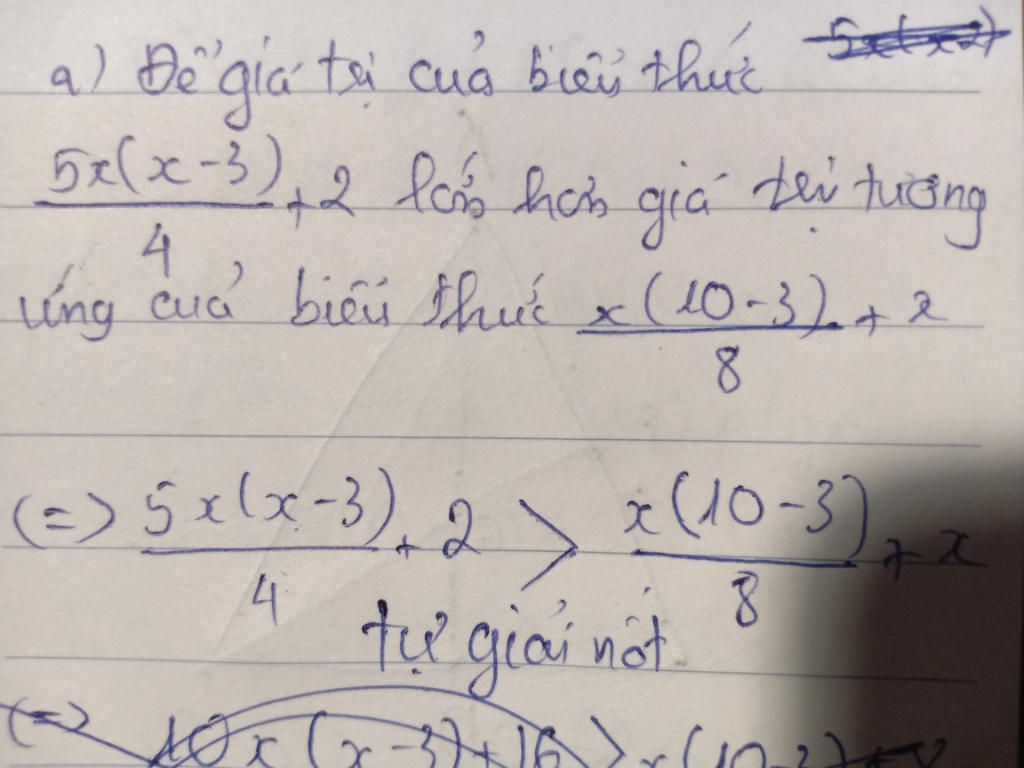 a) Để giá trị của biểu thức
5x(x-3)/4 + 2 lớn hơn giá trị tương
ứng của biểu thức x(10-3)/8 + x
(=> 5x(x-3)/4 + 2 > x(10-3)/8 + x
tự giải nốt
(=> 10x(x-3)+16 > x(10-3)